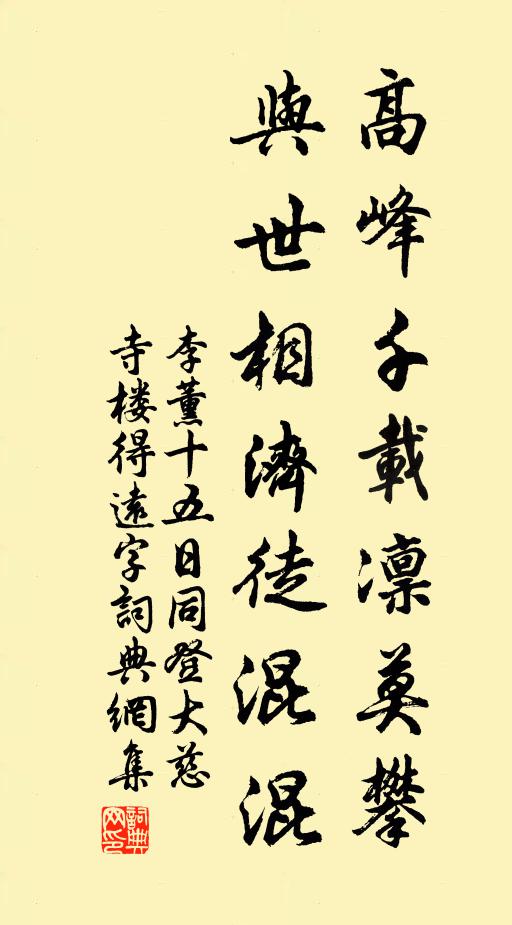 高峰千載凛莫攀
與世相濟徒混混
李薰十五日同登大慈
寺楼得遠字詞典網集
詞典
网印